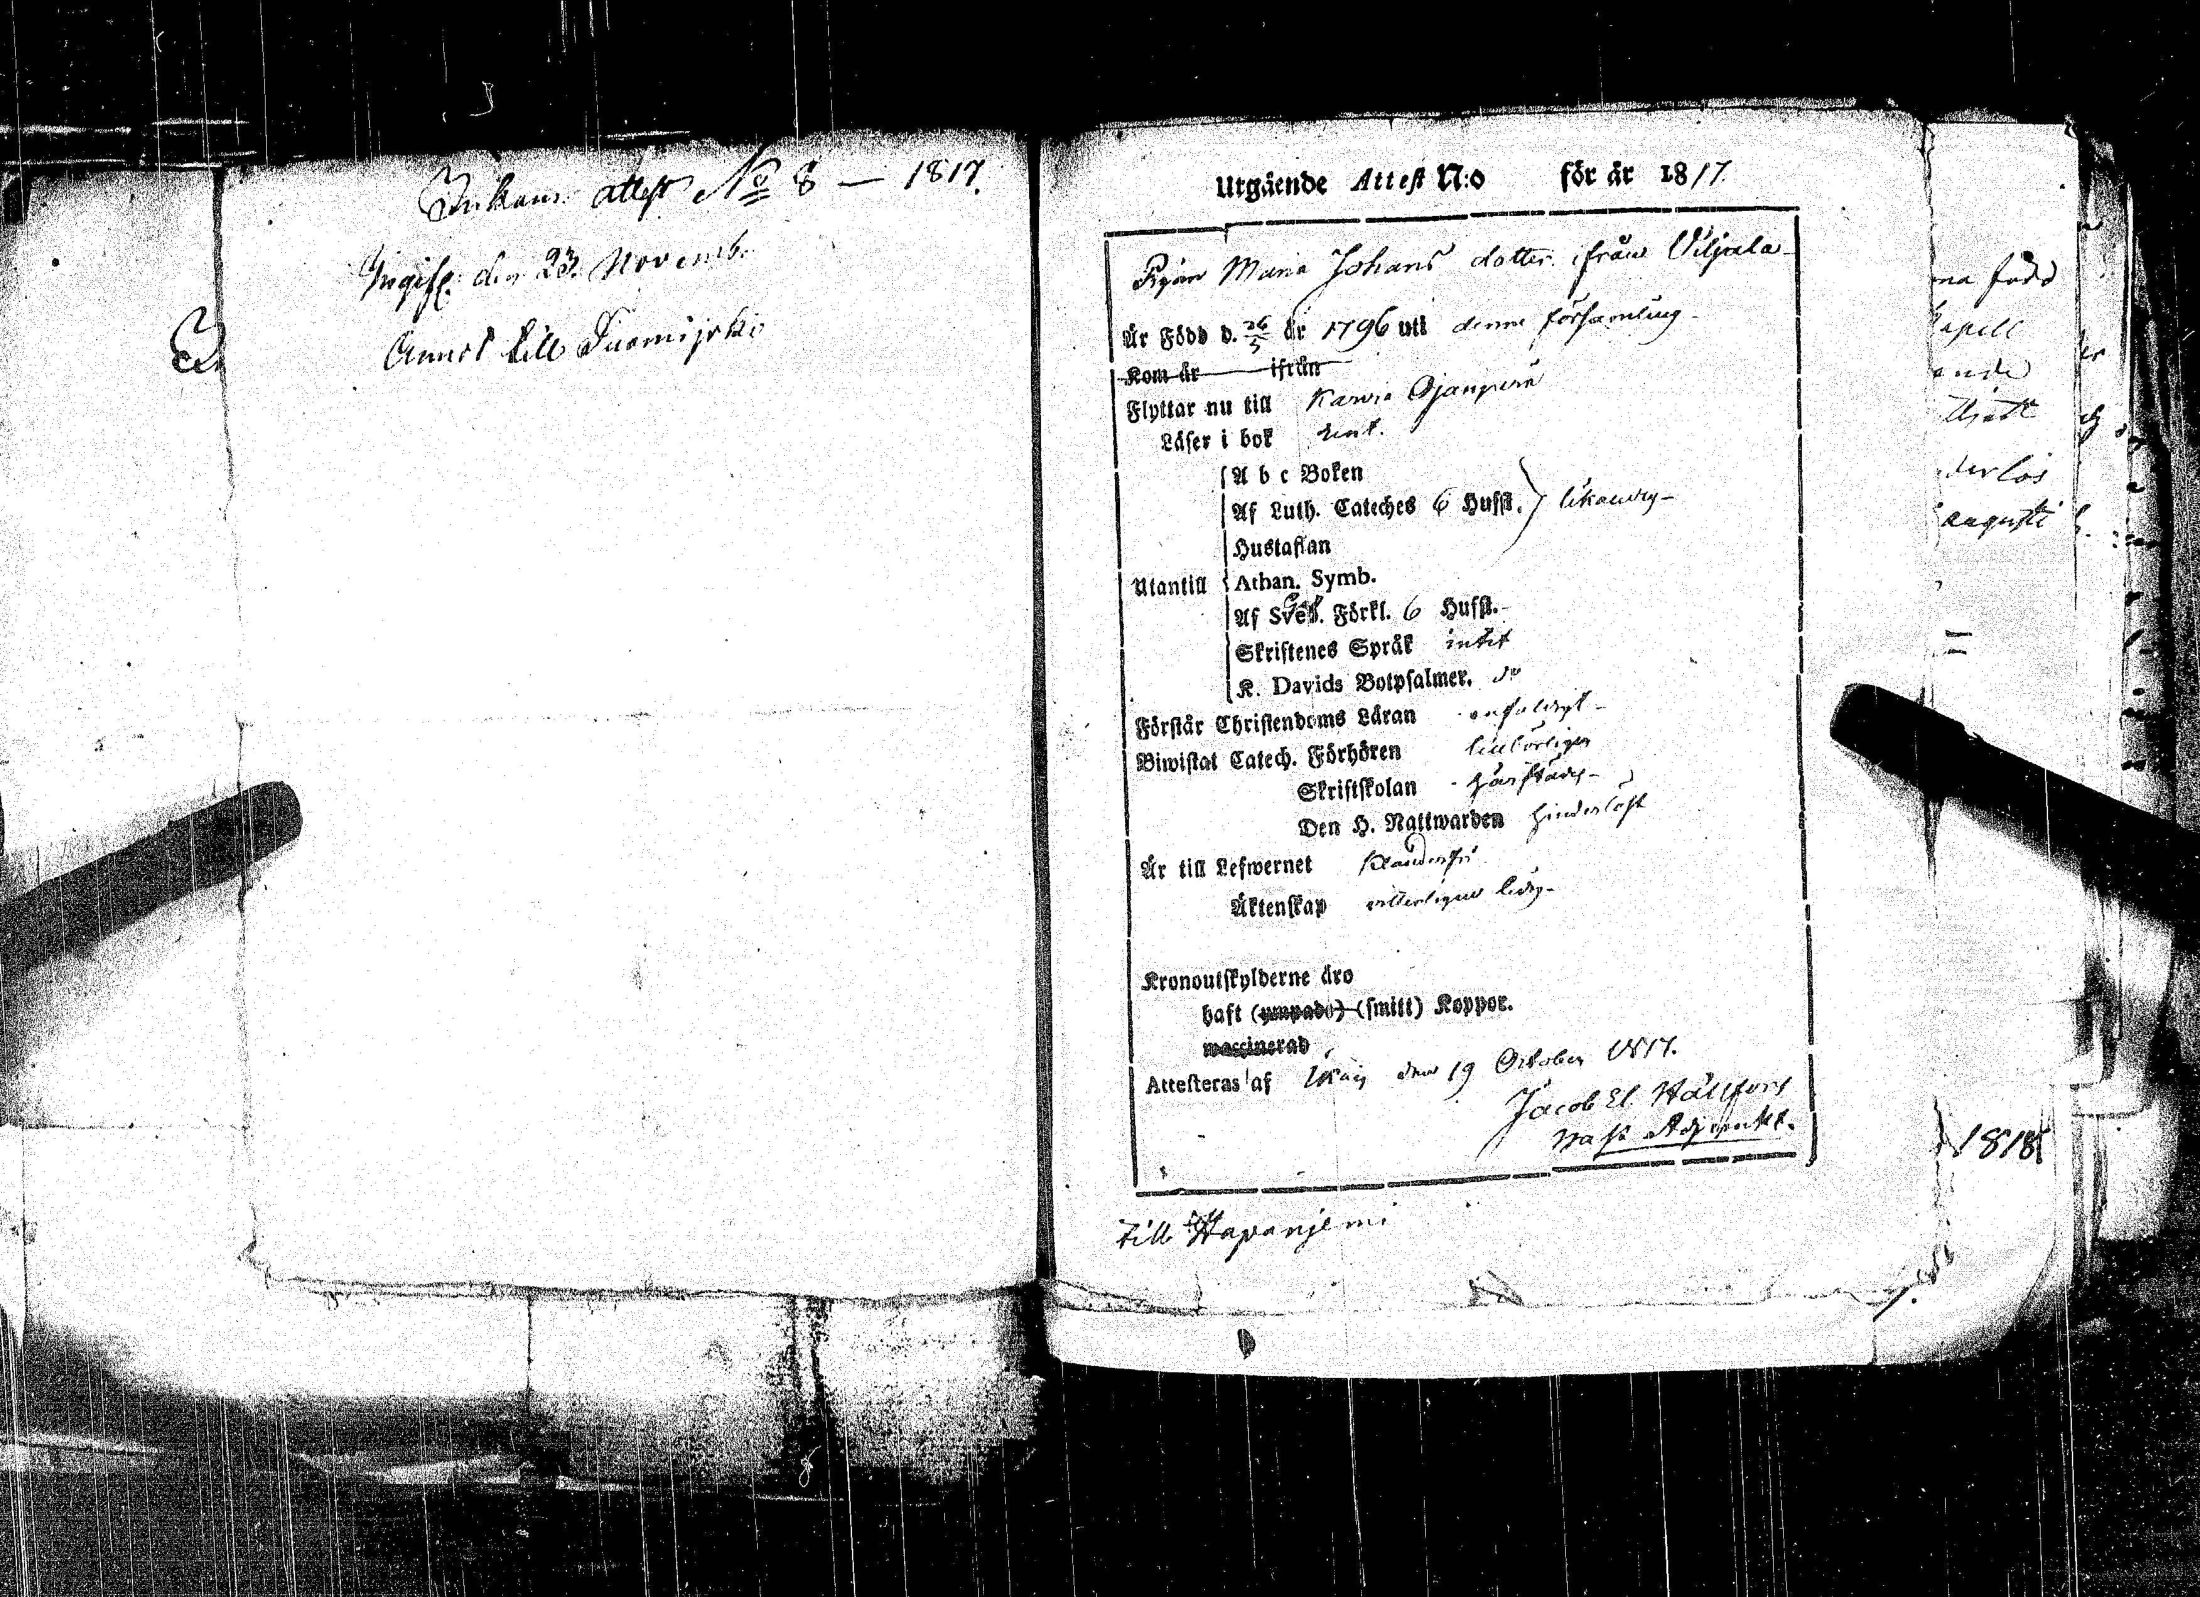 Inkom: attest No 8 — 1817.
Ingif. den 23. Novemb.
Annot till Suomijrki
Utgående Attest N:o för år 1817.
Pigan Maria Johans dotter ifrån Viljala
Är Född d. 26/5 år 1796 uti denna församling
Kom år ifrån
Flyttar nu till Karvia
Läser i bok rent.
A b c Boken
Af Luth. Cateches 6 Hufst. likaledes
Hustaflan
Utantill Athan. Symb.
Af Sveb. Förkl. 6 Hufst.
Skriftenes Språk intet
K. Davids Botpsalmer. do
Förstår Christendoms Läran enfaldigt
Biwistat Catech. Förhören
Skriftskolan härstädes
Den H. Nattwarden hinderlöst
Är till Lefwernet klanderfri
Äktenskap vitterligen ledig
Kronoutskylderne äro
haft (ympade) (smitt) Koppor.
waccinerad
Attesteras af den 19 October 1817.
Jacob El. Hällfors
Adjunkt.
till Hapanjemi
na född
Capell
ande
derlös
augusti
1818